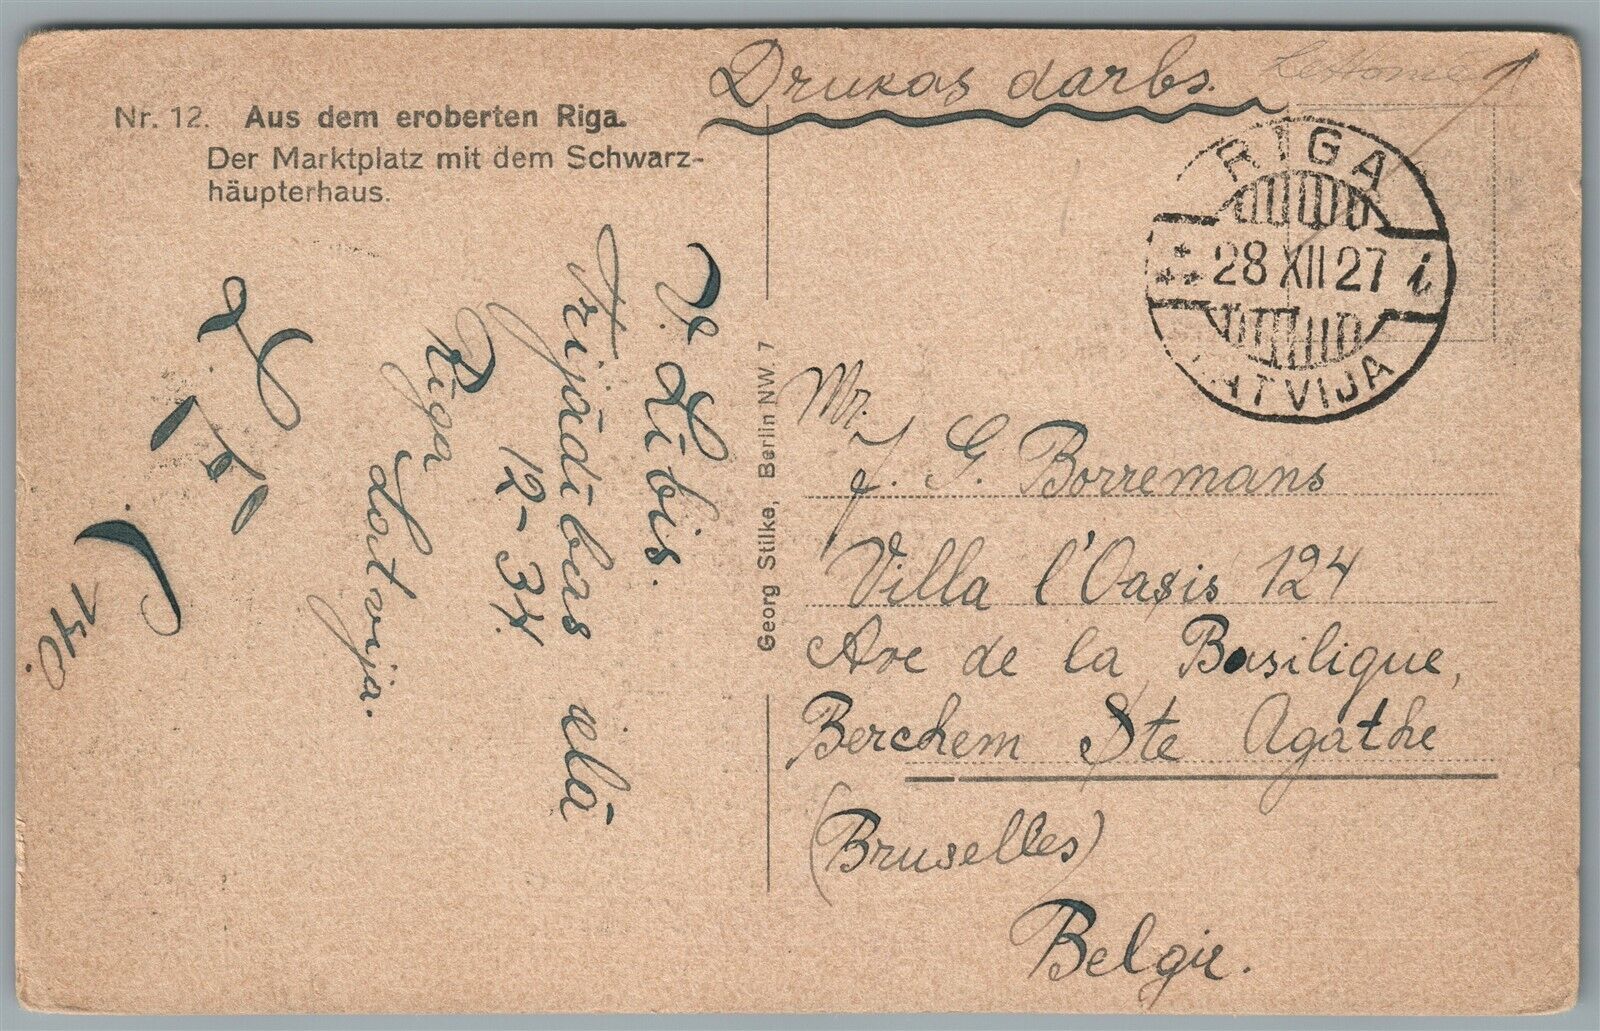 Nr. 12. Aus dem eroberten Riga.
Der Marktplatz mit dem Schwarz-
häupterhaus.
Drukas darbs.
RIGA
28 XII 27
LATVIJA
Georg Stilke, Berlin NW. 7
Mr.
J. G. Borremans
Villa l'Oasis 124
Ave de la Basilique,
Berchem Ste Agathe
(Bruselles)
Belgie.
Lūbis.
Trijādības ielā
12-34.
Riga
Latvija.